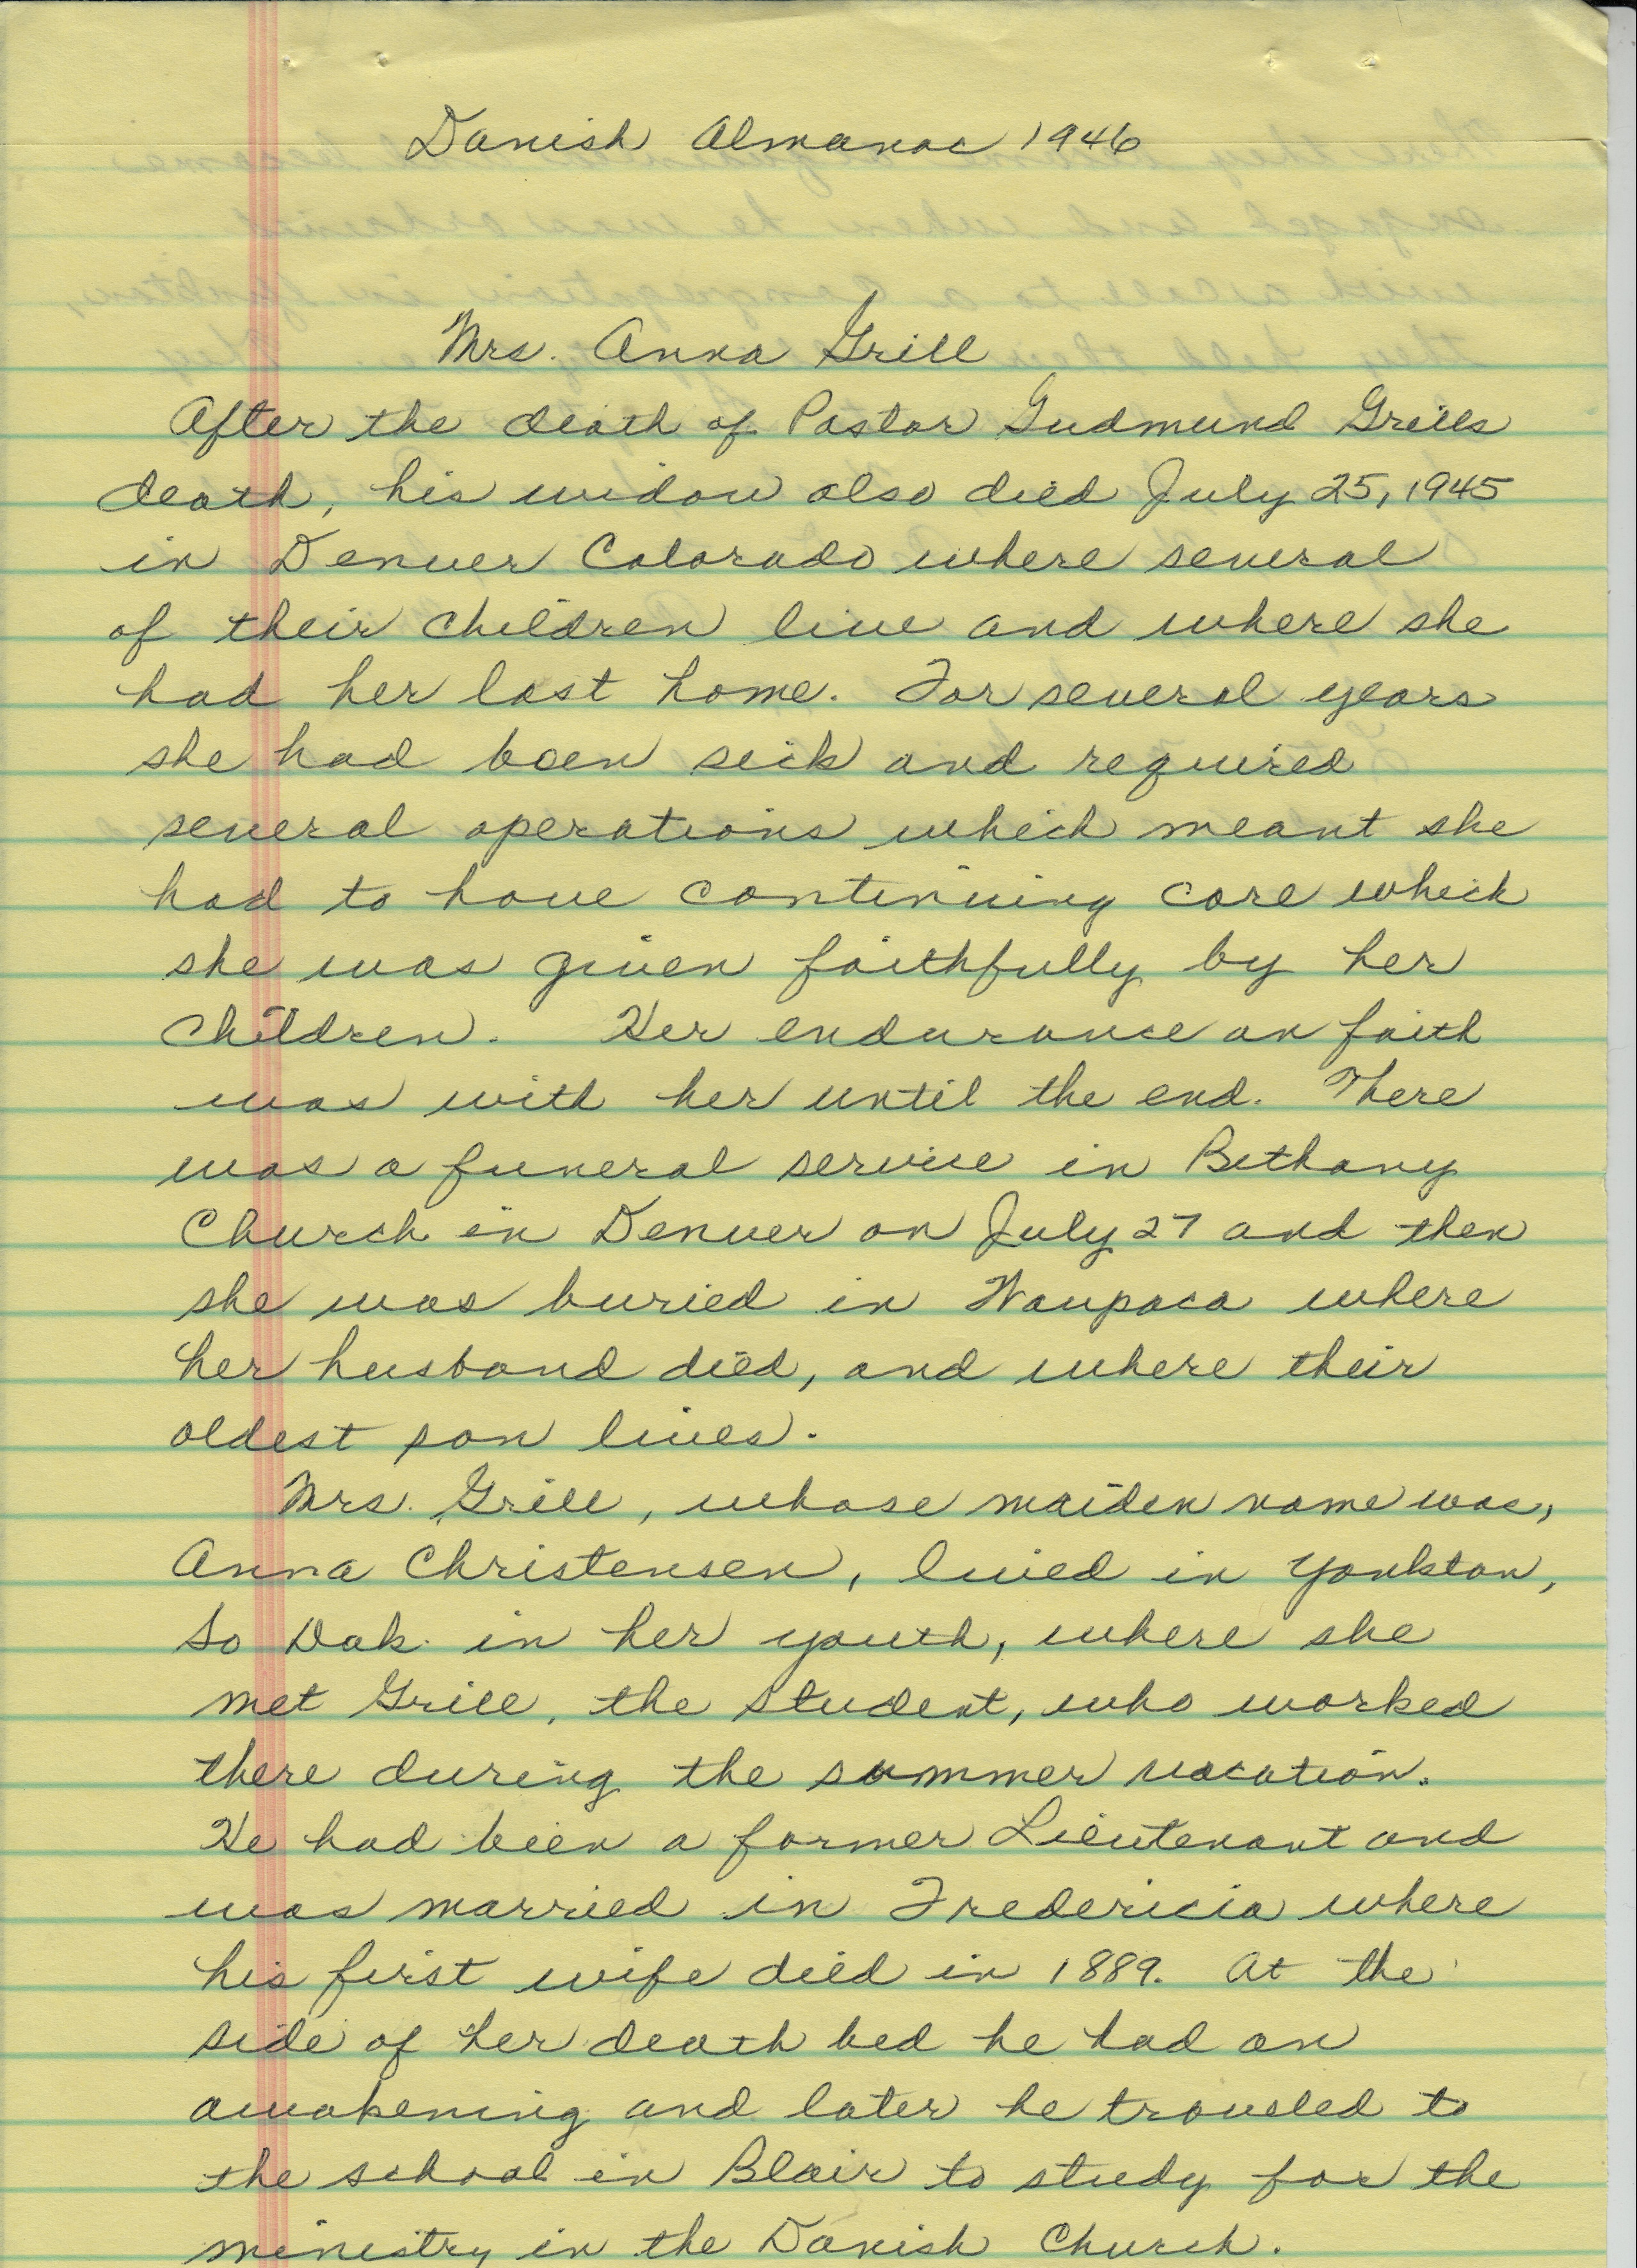 Danish Almanac 1946
Mrs. Anna Grill
After the death of Pastor Gudmund Grills
death, his widow also died July 25, 1945
in Denver Colorado where several
of their children live and where she
had her last home. For several years
she had been sick and required
several operations which meant she
had to have continuing care which
she was given faithfully by her
children. Her endurance an faith
was with her until the end. There
was a funeral service in Bethany
Church in Denver on July 27 and then
she was buried in Waupaca where
her husband died, and where their
oldest son lives.
Mrs. Grill, whose maiden name was,
Anna Christensen, lived in Yankton,
So Dak. in her youth, where she
met Grill, the student, who worked
there during the summer vacation.
He had been a former Lieutenant and
was married in Fredericia where
his first wife died in 1889. At the
side of her death bed he had an
awakening and later he traveled to
the school in Blair to study for the
ministry in the Danish Church.